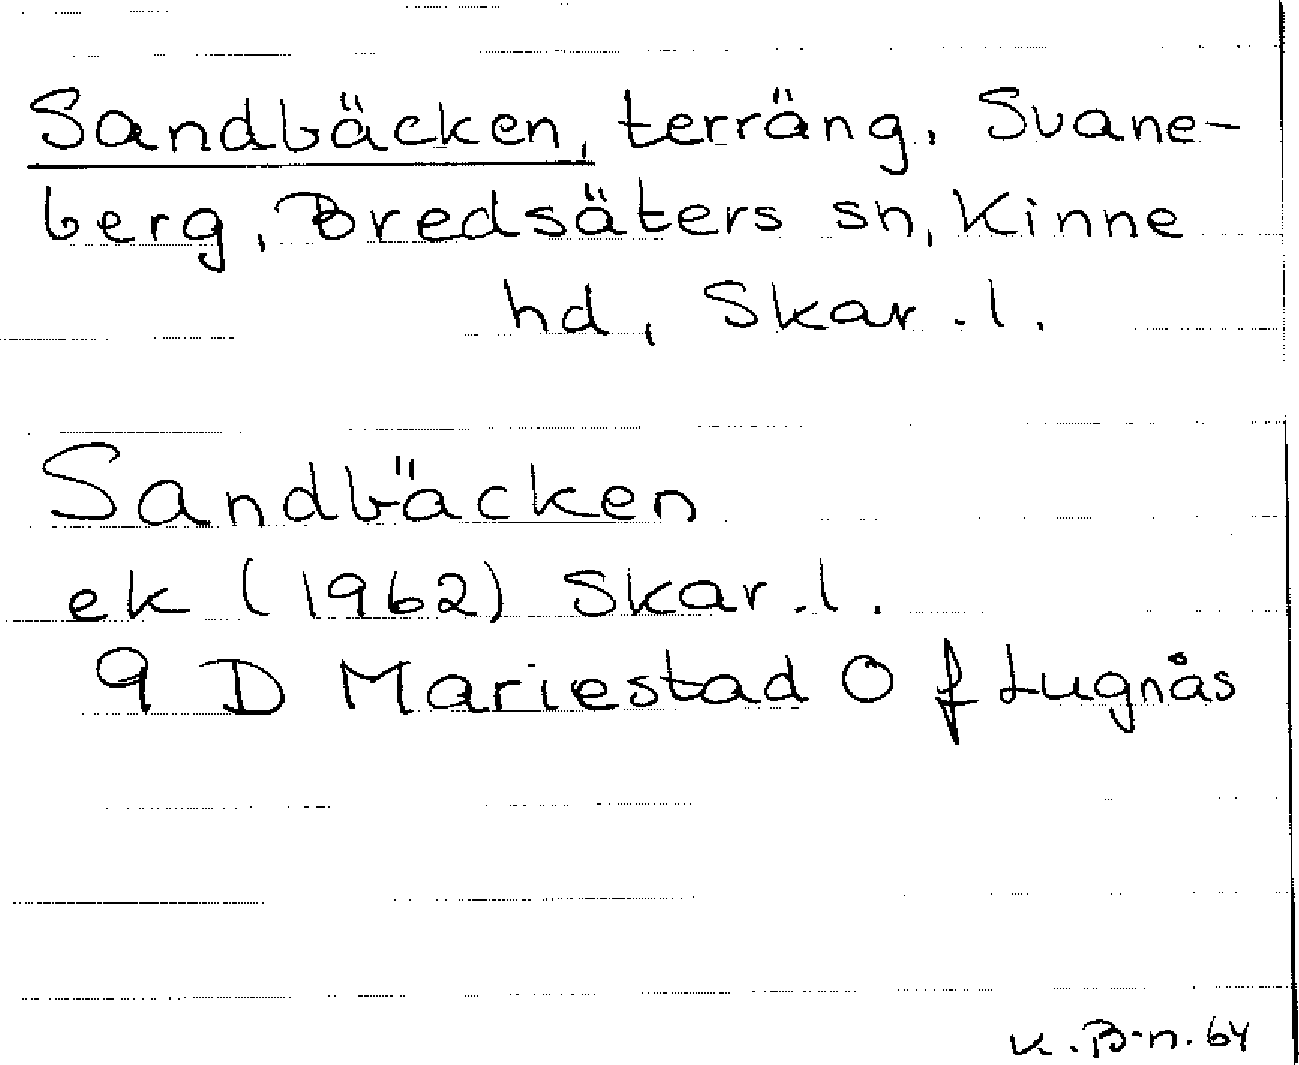 Sandbäcken, terräng, Svane-
berg, Bredsäters sn, Kinne
hd, Skar.l.
Sandbäcken
ek (1962) Skar.l.
9 D Mariestad O f Lugnås
K.B-n. 64